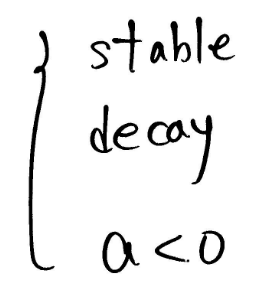 stable
decay
a<0